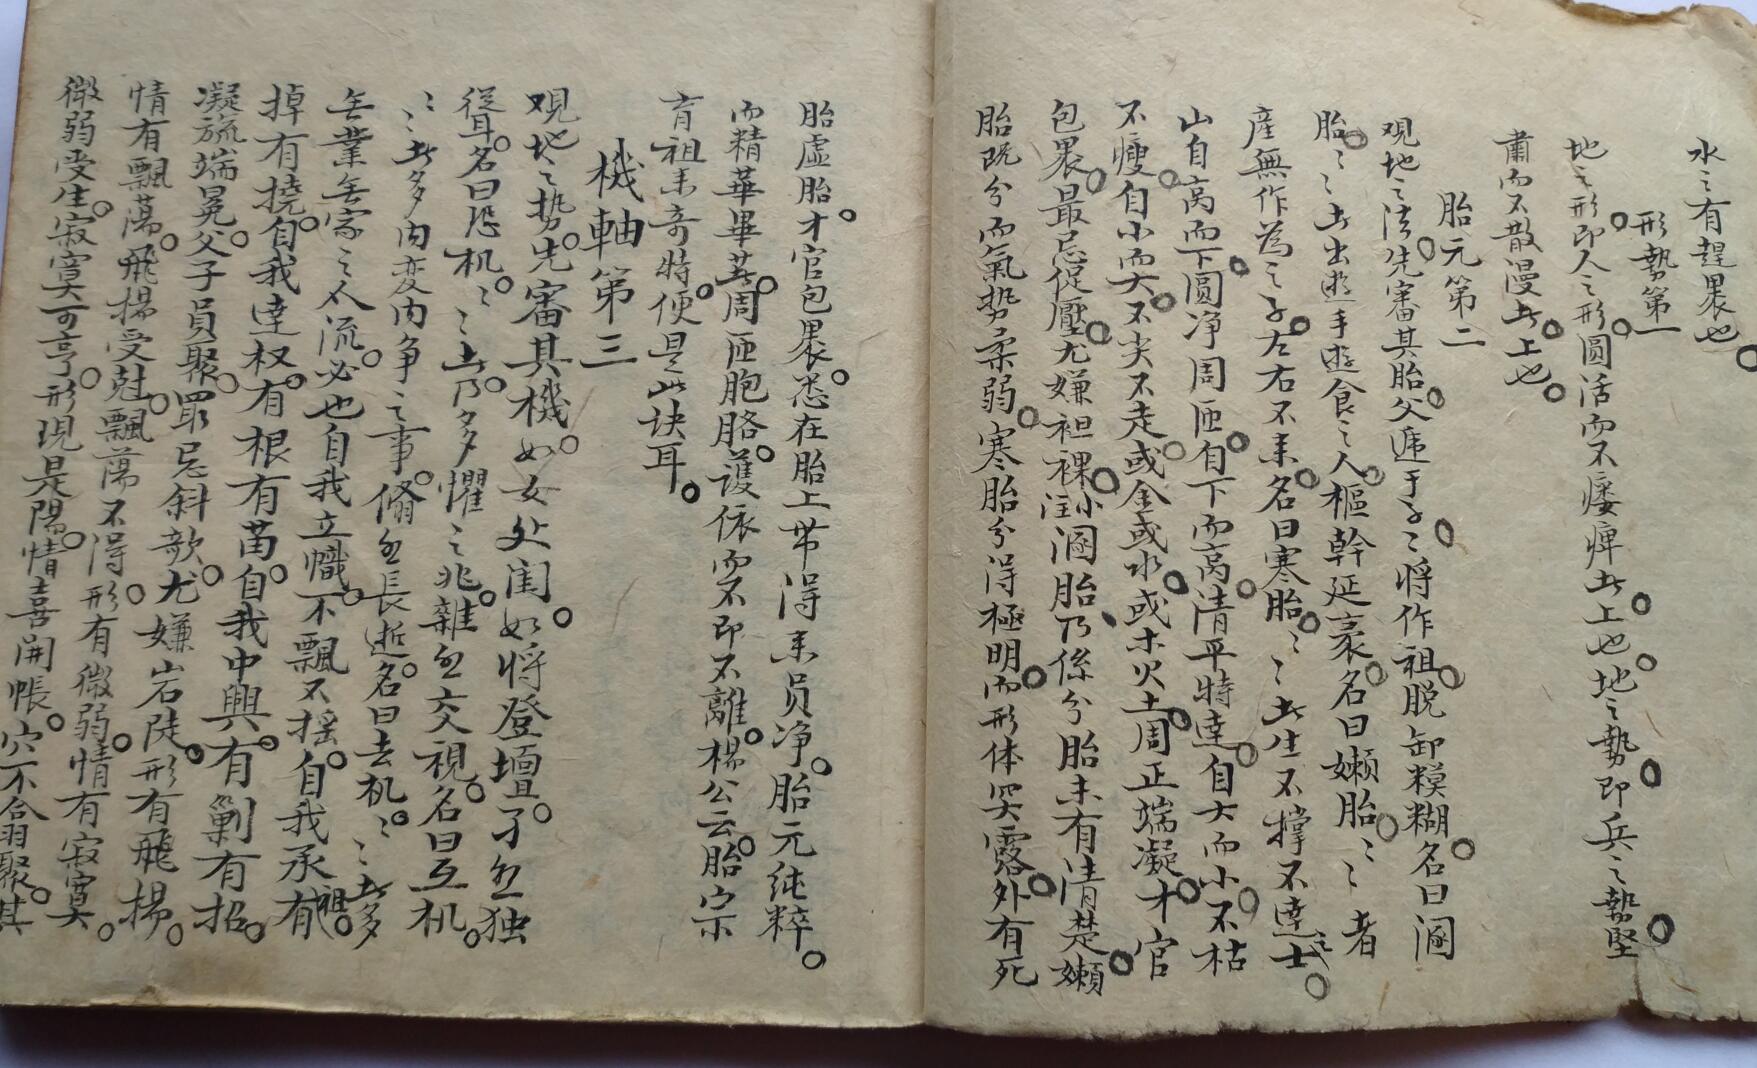 水之有趕褁也。
形勢第一
地之形。即人之形。圓活而不痿痺者。上也。地之勢。即兵之勢。堅
肅而不散漫者。上也。
胎元第二
观地之法。先審其胎。父逓于子。子將作祖。脱卸糢糊。名曰溷
胎。溷胎者出遊手遊食之人。樞幹延袤。名曰嬾胎。嬾胎者
產無作為之子。左右不耒。名曰寒胎。寒胎者生不撑不達之士。
山自高而下。圓净周匝。自下而高。清平特達。自大而小。不枯
不瘦。自小而大。不尖不走。或金或水。或木火土。周正端凝。才官
包褁。最忌促壓。尤嫌袒裸。小注溷胎乃係分胎未有清楚。嬾
胎既分而氣势柔弱。寒胎分得極明。而形体突露。外有死
胎虚胎。才官包褁。悉在胎上带得耒员净。胎元纯粹。
而精華畢萃。周匝胞胳。護依而不即不離。楊公云。胎宗
育祖耒奇特。便是此诀耳。
機軸第三
观地之势。先審其機。如女处闺。如将登壇。孑立独
聳。名曰恐机。恐机者。乃多多懼之兆。雜立交視。名曰互机。
互机者多内变内争之事。脩立長逝。名曰去机。去机者多
無業無家之人。流必也自我立幟。不飄不摇。自我承祖。有
掉有撓。自我達权。有根有苗。自我中興。有剿有招。
凝旒端冕。父子員聚。最忌斜欹。尤嫌岩陡。形有飛揚。
情有飄蕩。飛揚受尅。飄蕩不得。形有微弱。情有寂寞。
微弱受生。寂寞可亨。形現是陽。情喜開帳。穴不合翕聚。其